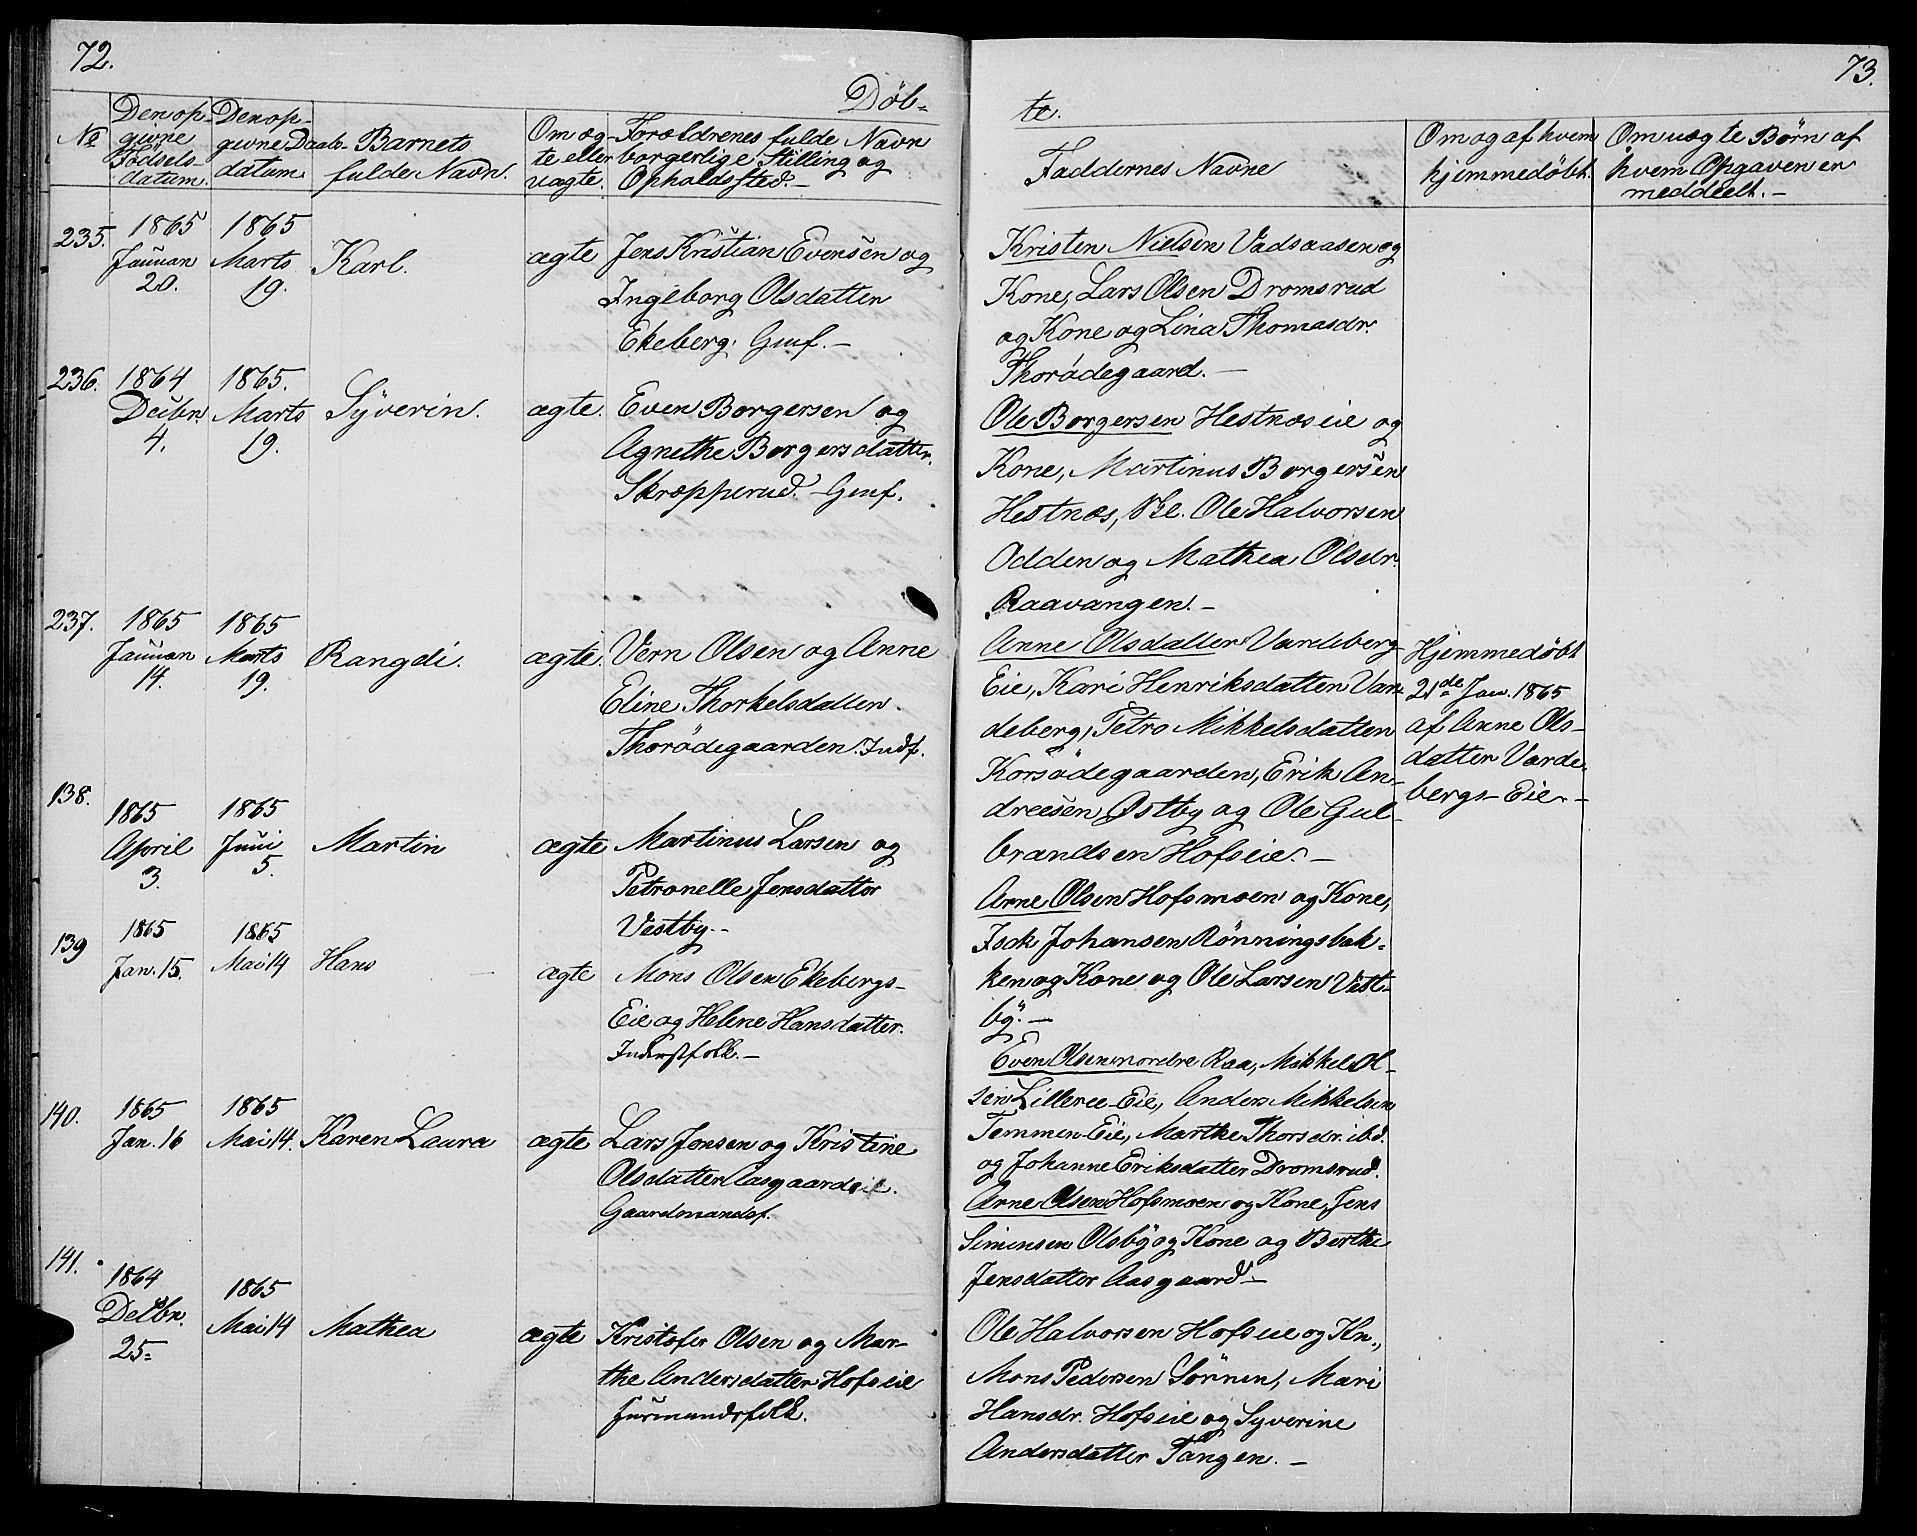 72.
Döb-
№
Den op-
givne
Fødsels-
datum.
Den op-
givne Daabs-
datum.
Barnets
fulde Navn.
Om æg-
te eller
uægte.
Forældrenes fulde Navn
borgerlige Stilling og
Opholdssted. -
235.
1865
Januar
20.
1865
Marts
19.
Karl.
ægte
Jens Kristian Evensen og
Ingeborg Olsdatter
Ekeberg. Gmf. -
236.
1864
Decbr.
4.
1865.
Marts
19.
Syverin.
ægte.
Even Borgersen og
Agnethe Borgersdatter.
Skræpperud. - Gmf.
237.
1865
Januar
14.
1865
Marts
19.
Rangdi.
ægte.
Vern Olsen og Anne
Eline Thorkelsdatter.
Thorödegaarden. Indf.
138.
1865
April
3.
1865
Juni
5.
Martin
ægte
Martinus Larsen og
Petronelle Jensdatter
Vestby. -
139
1865
Jan. 15.
1865
Mai 14
Hans
ægte
Mons Olsen Ekebergs-
Eie og Helene Hansdatter.
Inderstfolk. -
140.
1865
Jan. 16
1865
Mai 14.
Karen Laura
ægte
Lars Jensen og Kristine
Olsdatter Aasgaardeie.
Gaardmandsf.
141.
1864
Decbr.
25.
1865
Mai 14
Mathea
ægte
Kristofer Olsen og Mar-
the Andersdatter Hofseie
Husmandsfolk.
73.
te.
Faddernes Navne
Om og af hvem
hjemmedöbt.
Om uægte Børn af
hvem Opgaven er
meddeelt. -
Kristen Nielsen Vadsaasen og
Kone, Lars Olsen Dromsrud
og Kone og Lina Thomasdr.
Thorödegaard. -
Ole Borgersen Hestnæseie og
Kone, Martinus Borgersen
Hestnæs, Ole Halvorsen
Odden og Mathea Olsdr.
Raavangen. -
Anne Olsdatter Vardeberg
Eie, Kari Henriksdatter Var-
deberg, Petro Mikkelsdatter
Korsödegaarden, Erik An-
dreesen Østby og Ole Gul-
brandsen Hofseie. -
Hjemmedöbt
21de Jan. 1865
af Anne Ols-
datter Varde-
bergs-Eie -
Arne Olsen Hofsmoen og Kone,
Isak Johansen Rönningsbak-
ken og Kone og Ole Larsen Vest-
by. -
Even Olsen nordre Raa, Mikkel Ol-
sen Lilleree-Eie, Anders Mikkelsen
Temmen-Eie, Marthe Thorsdr. ibd.
og Johanne Eriksdatter Dromsrud.
Arne Olsen Hofsmoen og Kone, Jens
Simensen Olsby og Kone og Berthe
Jensdatter Aasgaard -
Ole Halvorsen Hofseie og Kn.,
Mons Pedersen Sörnen, Mari
Hansdr. Hofseie og Syverine
Andersdatter Tangen. -